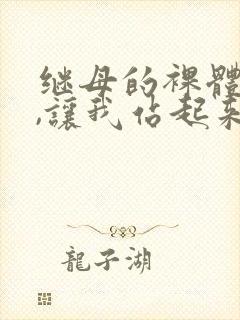 继母的裸體
,讓我佔起来
龍子湖